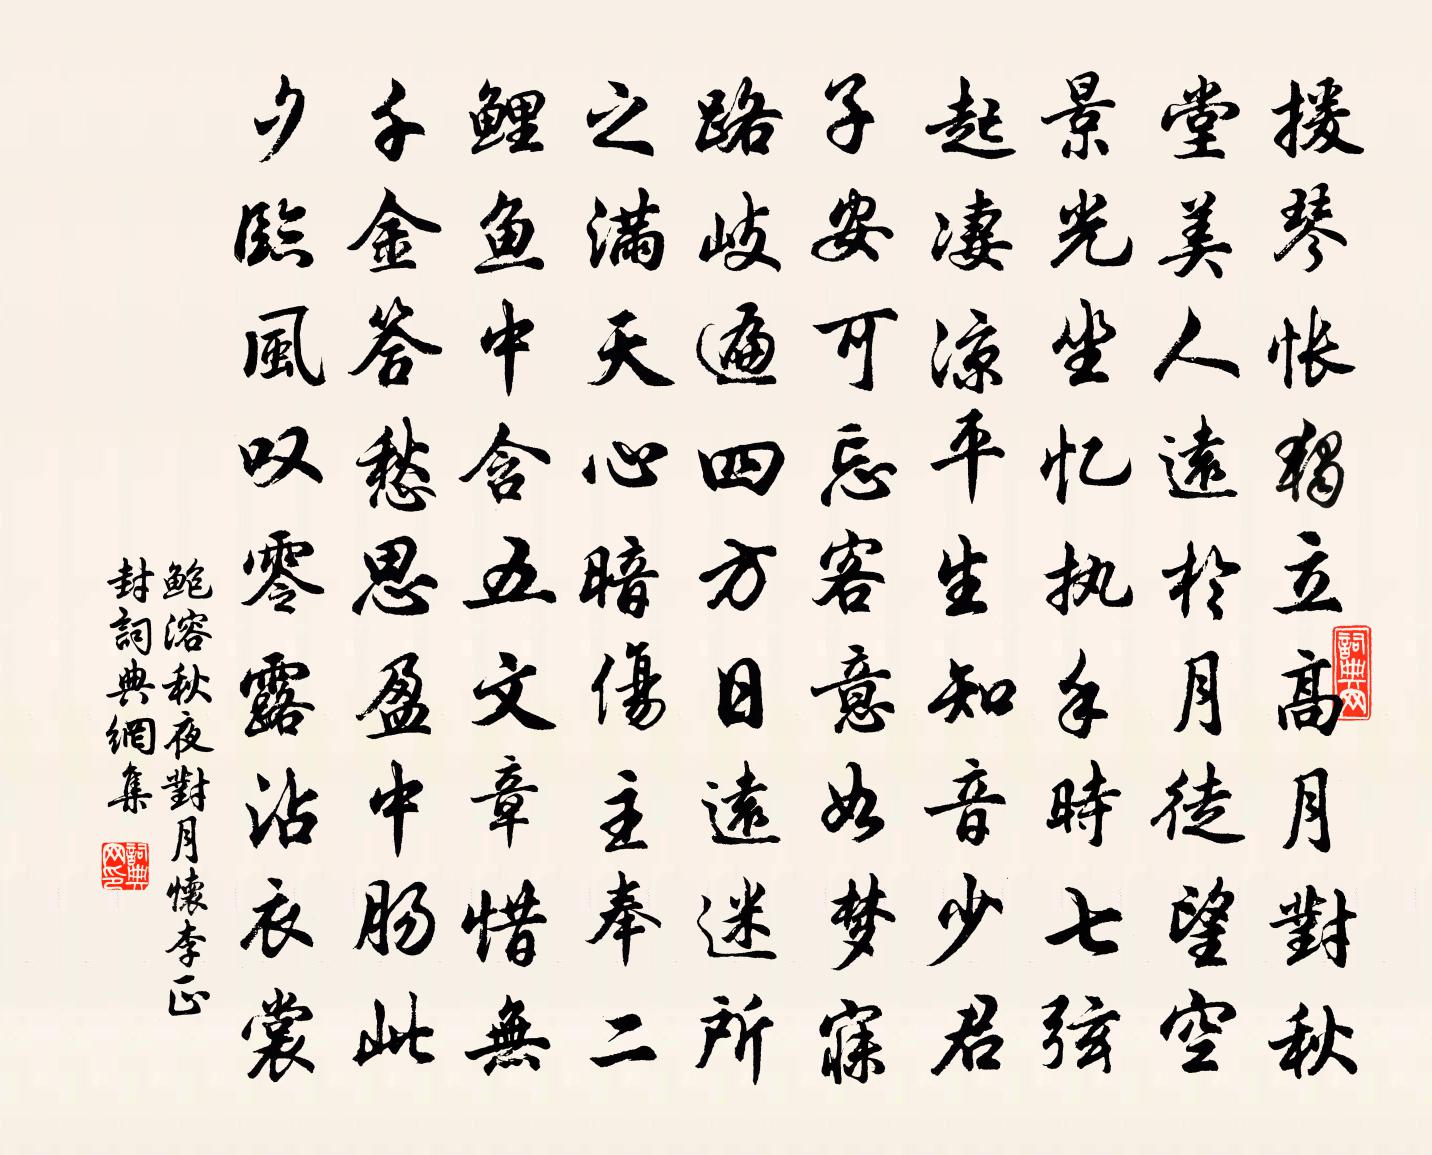 援琴怅獨立高月對秋
堂美人遠於月徒望空
景光坐忆执手時七弦
起凄凉平生知音少君
子安可忘客意如梦寐
路岐遍四方日遠迷所
之满天心暗傷主奉二
鲤鱼中含五文章惜無
千金答愁思盈中肠此
夕臨風叹零露沾衣裳
鲍溶秋夜對月懷李正
封詞典網集
詞典网
詞典网印